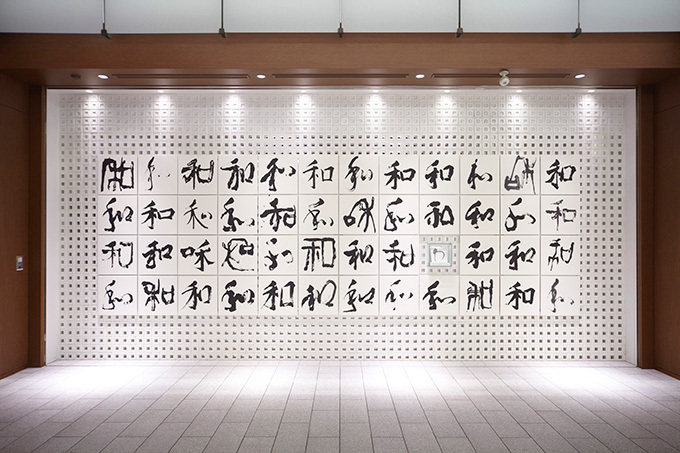 和和和和和和和和和和和和
和和和和和和和和和和和和
和和咊和和和和和わ和和和
和和和和和和和和和和和和